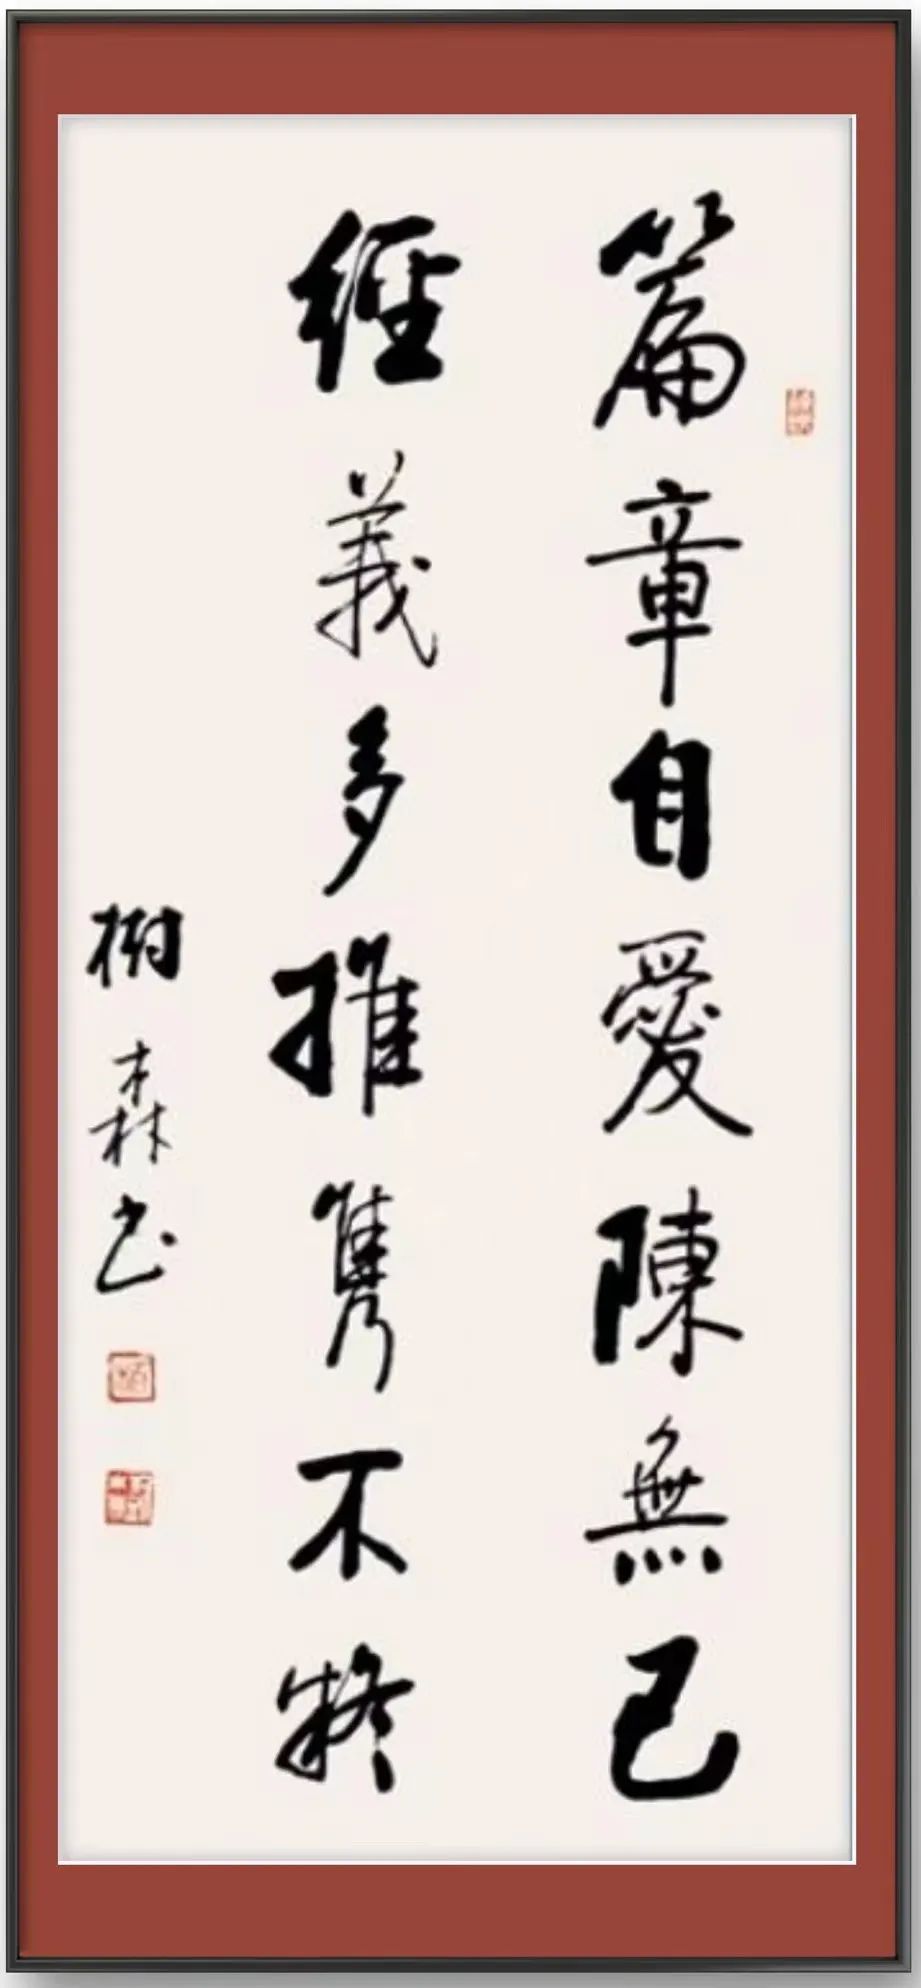 篇章自愛陳無己
經義多推雋不疑
樹森书